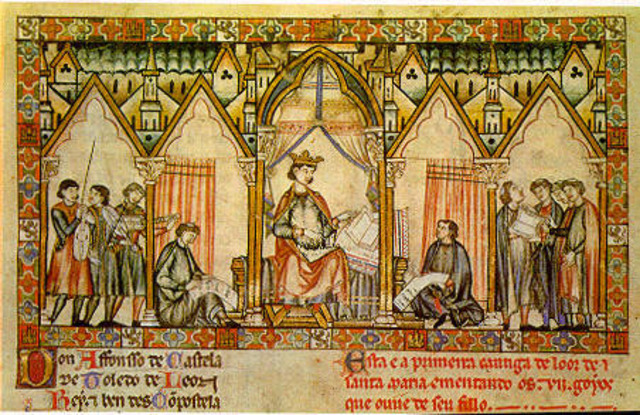 Don Affonsso de Castela
de Toledo de Leon
Rey τ ben des Conpostela
Esta e a primeira cantiga de loor de
santa maria ementando os . vii . goyos
que ouue de seu fillo .